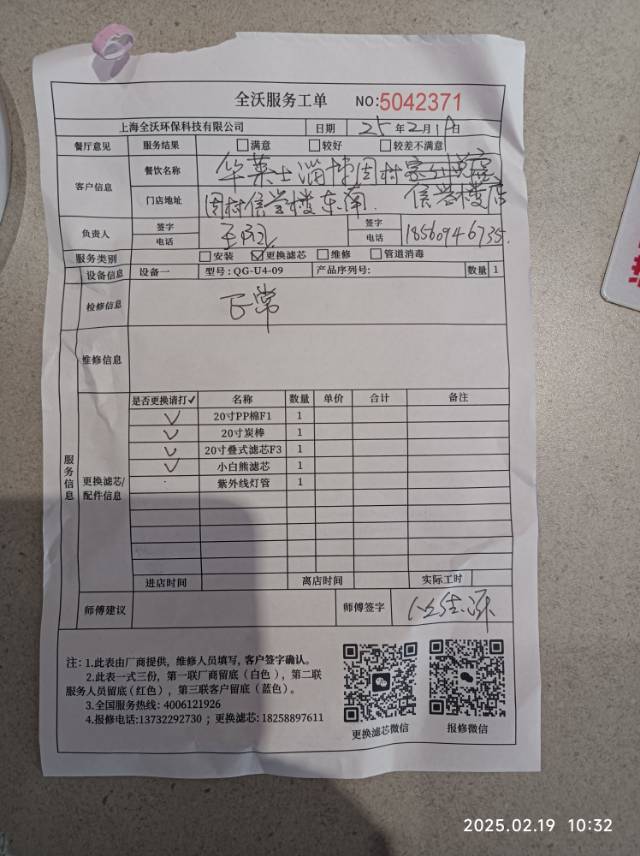 全沃服务工单 NO:5042371
上海全沃环保科技有限公司 日期 25年2月19日
餐厅意见 服务结果 □满意 □较好 □较差不满意
客户信息 餐饮名称 华莱士淄博周村
门店地址 周村信誉楼东南 信誉楼店
负责人 签字 签字
电话 电话 18560946735
服务类别 □安装 ☑更换滤芯 □维修 □管道消毒
服务信息
设备信息 设备一 型号:QG-U4-09 产品序列号: 数量 1
检修信息 正常
维修信息
更换滤芯/配件信息
是否更换请打✓ 名称 数量 单价 合计 备注
✓ 20寸PP棉F1 1
✓ 20寸炭棒 1
✓ 20寸叠式滤芯F3 1
✓ 小白熊滤芯 1
紫外线灯管 1
进店时间 离店时间 实际工时
师傅建议 师傅签字
注:1.此表由厂商提供，维修人员填写,客户签字确认。
2.此表一式三份，第一联厂商留底(白色)，第二联
服务人员留底(红色)，第三联客户留底(蓝色)。
3.全国服务热线: 4006121926
4.报修电话:13732292730；更换滤芯:18258897611
更换滤芯微信 报修微信
2025.02.19 10:32